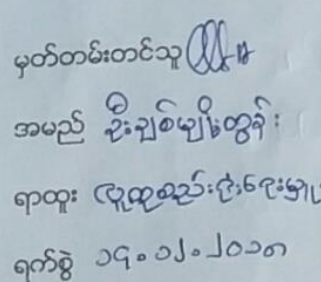 မှတ်တမ်းတင်သူ
အမည် ဦးချစ်မျိုးထွန်း
ရာထူး လူထုစည်းရုံးရေးမှူး
ရက်စွဲ ၁၄.၁၂.၂၀၁၈